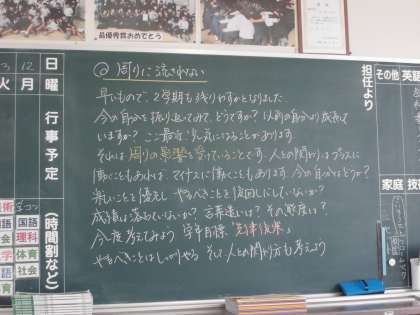 最優秀賞おめでとう
◎ 周りに流されない
早いもので、2学期も残りわずかとなりました
今の自分を振り返ってみて、どうですか？以前の自分より成長して
いますか？ここ最近、気になることがあります
それは周りの影響を受けていることです。人との関わりはプラスに
働くこともあれば、マイナスに働くこともあります 今の自分はどうか？
楽しいことを優先し やるべきことを後回しにしていないか？
成績は落ちていないか？言葉遣いは？その態度は？
今一度考えてみよう 学年目標
やるべきことはしっかりやる そして人との関わり方も考えよう
担任より
その他
英語
家庭
技
日 曜
行事予定
(時間割など)
12
月
火
3
国語
理科
体育
社会
国語